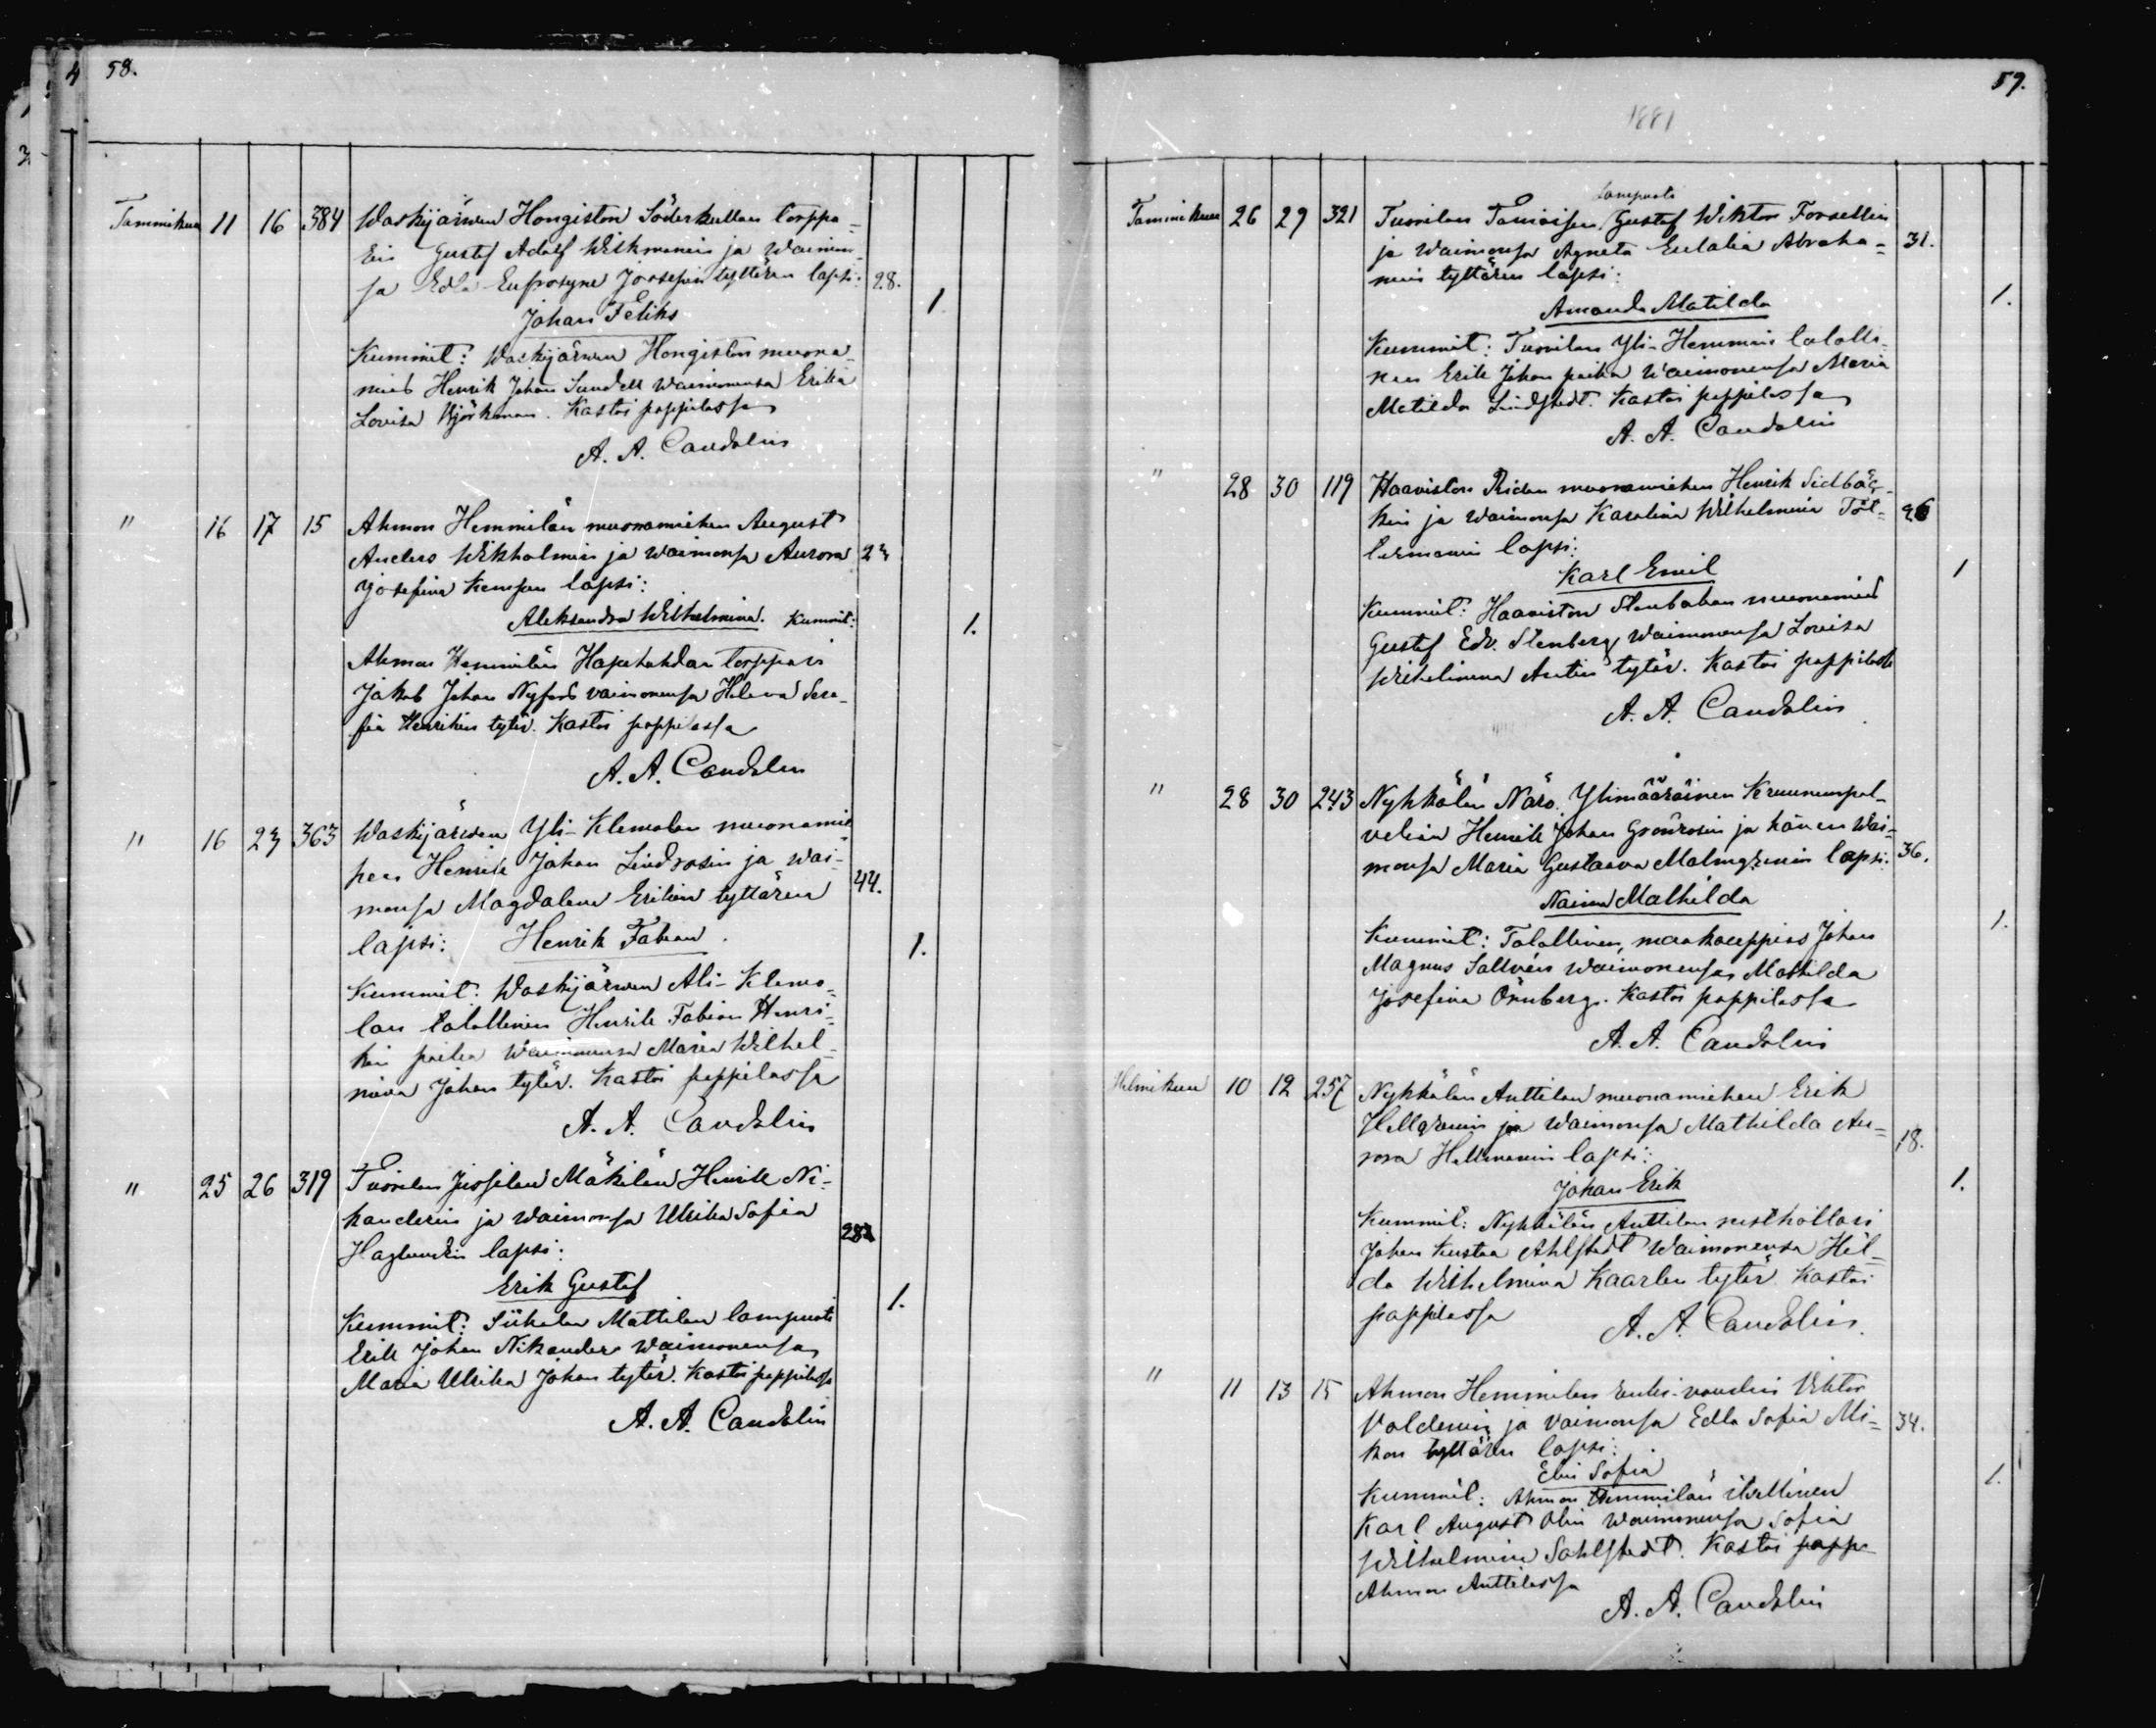 4 58.
Tammikuu 11 16 384 Waskijärwen Hongiston Söderkullan torppa-
rin Gustaf Adolf Wikmanin ja Waimon-
sa Edla Eufrosyne Joosepin tyttären lapsi: 28.
Johan Feliks 1
Kummit: Waskijärwen Hongiston muona-
mies Henrik Johan Sundell waimonensa Erika
Lovisa Björkman. Kastoi pappilassa
A. A. Candolin
" 16 17 15 Ahmon Hemmilän muonamiehen August
Anders Wikholmin ja waimonsa Aurora 23
Josefina Kempen lapsi:
Aleksandra Wilhelmina. Kummit: 1.
Ahmon Hemmilän Hapelahdan torppari
Jakob Johan Nyfors vaimonensa Helena Sera-
fia Henrikin tytär. Kastoi pappilassa
A. A. Candolin
" 16 23 363 Waskijärwen Yli-Klemolan muonamie-
hen Henrik Johan Lindrosin ja wai-
monsa Magdalena Erikin tyttären 44.
lapsi: Henrik Fabian. 1.
Kummit: Waskijärwen Ali-Klemo-
lan talollinen Henrik Fabian Henri-
kin poika Waimonensa Maria Wilhel-
mina Johan tytär. Kastoi pappilassa
A. A. Candolin
" 25 26 319 Tuorilan Jussilan Mäkilän Henrik Ni-
kanderin ja Waimonsa Ulrika Sofia
Haglundin lapsi: 28
Erik Gustaf 1.
Kummit: Siikalan Mattilan lampuoti
Erik Johan Nikander Waimonensa
Maria Ulrika Johan tytär. Kastoi pappilassa
A. A. Candolin
59.
1881
lampuoti
Tammikuu 26 29 321 Tuorilan Tamisen Gustaf Wiktor Forsellin
ja Waimonsa Agneta Eulalia Abraha- 31.
min tyttären lapsi:
Amanda Matilda 1.
Kummit: Tuorilan Yli-Hemmin talolli-
nen Erik Johan poika Waimonensa Maria
Matilda Lindstedt. Kastoi pappilassa
A. A. Candolin
" 28 30 119 Haaviston Pridan muonamiehen Henrik Sidbäc-
kin ja Waimonsa Karolina Wilhelmina Töt- 26
termanin lapsi:
Karl Emil 1
Kummit: Haaviston Stenbakan muonamies
Gustaf Edv. Stenberg Waimonensa Lovisa
Wilhelmina Antin tytär. Kastoi pappilassa
A. A. Candolin
" 28 30 243 Nyhkälän Näro. Ylimääräinen Kruununpal-
velian Henrik Johan Grönrosin ja hänen Wai-
monsa Maria Gustaava Malmgrenin lapsi: 36.
Naima Mathilda 1.
Kummit: Talollinen, maakauppias Johan
Magnus Sallvén Waimonensa Mathilda
Josefina Örnberg. Kastoi pappilassa
A. A. Candolin
Helmikuu 10 12 257 Nyhkälän Anttilan muonamiehen Erik
Hellgrenin ja Waimonsa Mathilda Au-
rora Hellmanin lapsi: 18.
Johan Erik 1.
Kummit: Nyhkälän Anttilan rusthollari
Johan Kustaa Ahlstedt Waimonensa Hil-
da Wilhelmina Kaarlen tytär. Kastoi
pappilassa A. A. Candolin.
" 11 13 15 Ahmon Hemmilän entis-voudin Viktor
Valdenin ja Vaimonsa Edla Sofia Mi- 34.
kon tyttären lapsi:
Elin Sofia 1.
Kummit: Ahmon Hemmilän itsellinen
Karl August Olin Waimonensa Sofia
Wilhelmina Sahlstedt. Kastoi pappi
Ahmon Anttilassa
A. A. Candolin